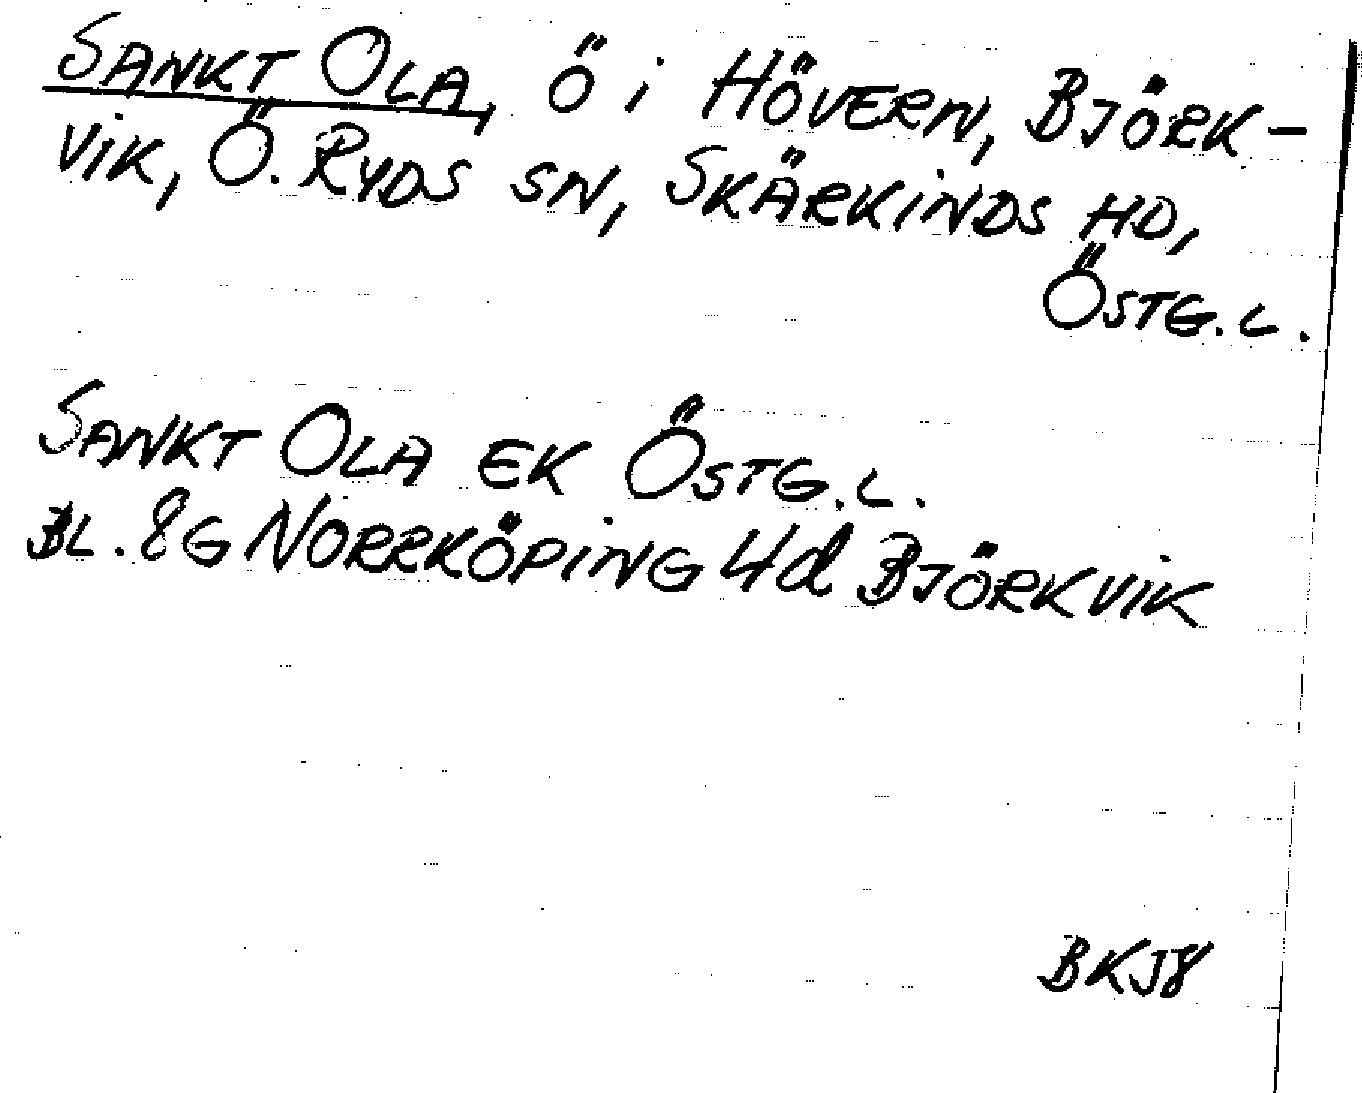 SANKT OLA, Ö i HÖVERN, BJÖRK-
VIK, Ö. RYDS SN, SKÄRKINDS HD,
ÖSTG. L.
SANKT OLA EK ÖSTG. L.
BL. 8G NORRKÖPING 4d BJÖRKVIK
BKJ8